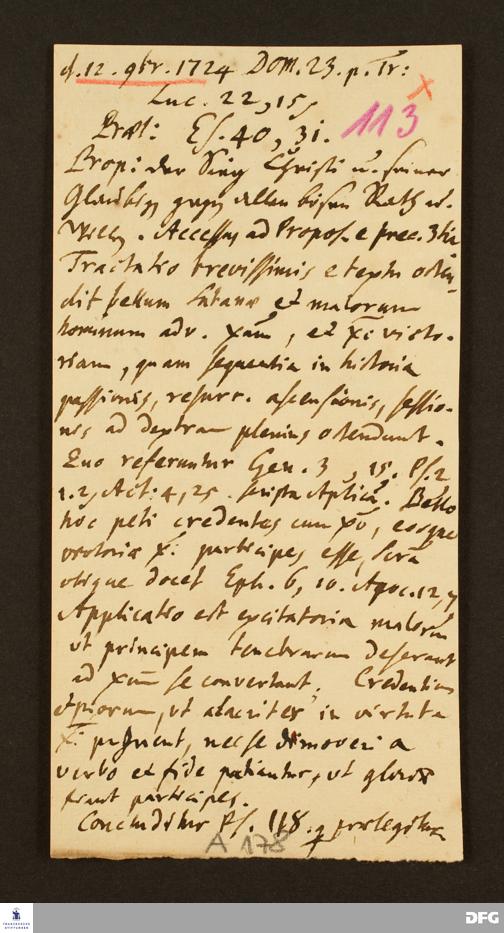 d. 12. 9br. 1724 Dom. 23. p. Tr:
Luc. 22, 15,
113
Præl: Es. 40, 31.
Prop: der Sieg Christi u. seiner
Gläubigen gegen allen bösen Rath u.
Willen. Accessus ad Propos. e prec. 3tia
Tractatio brevissimis e textu osten-
dit bellum Satanæ et malorum
hominum adv. Xum, et Xi victo-
riam, quam sequentia in historia
passionis, resurr. ascensionis, sessio-
nis ad dextram plenius ostendunt.
Quo referuntur Gen. 3, 15. Ps. 2
1. 2, Act: 4, 25.
Bello
hoc peti credentes cum Xo, eosque
victoriæ Xi participes esse, Scra
utique docet Eph. 6, 10. Apoc. 12, 7
Applicatio est excitatoria malorum
ut principem tenebrarum deserant
ad Xum se convertant. Credentium
et piorum, ut alacriter in virtute
Xi pugnent, nec se dimoveri a
verbo et fide patiantur, ut gloriæ
fiant participes.
Concluditur Ps. 118. prælegitur
A 178
FRANCKESCHE STIFTUNGEN
DFG